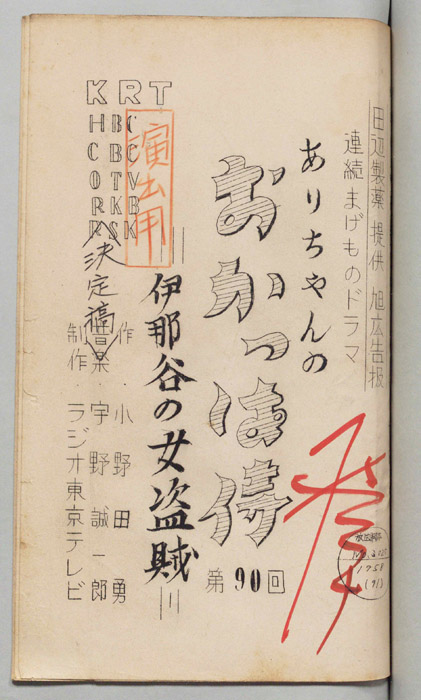 田辺製薬 提供 旭広告扱
連続まげものドラマ
ありちゃんの
おかっぱ侍
第90回
伊那谷の女盗賊
作・小野田勇
音楽・宇野誠一郎
制作・ラジオ東京テレビ
演出用
KRT
HBC
CBC
OTV
RKB
RSK
決定稿